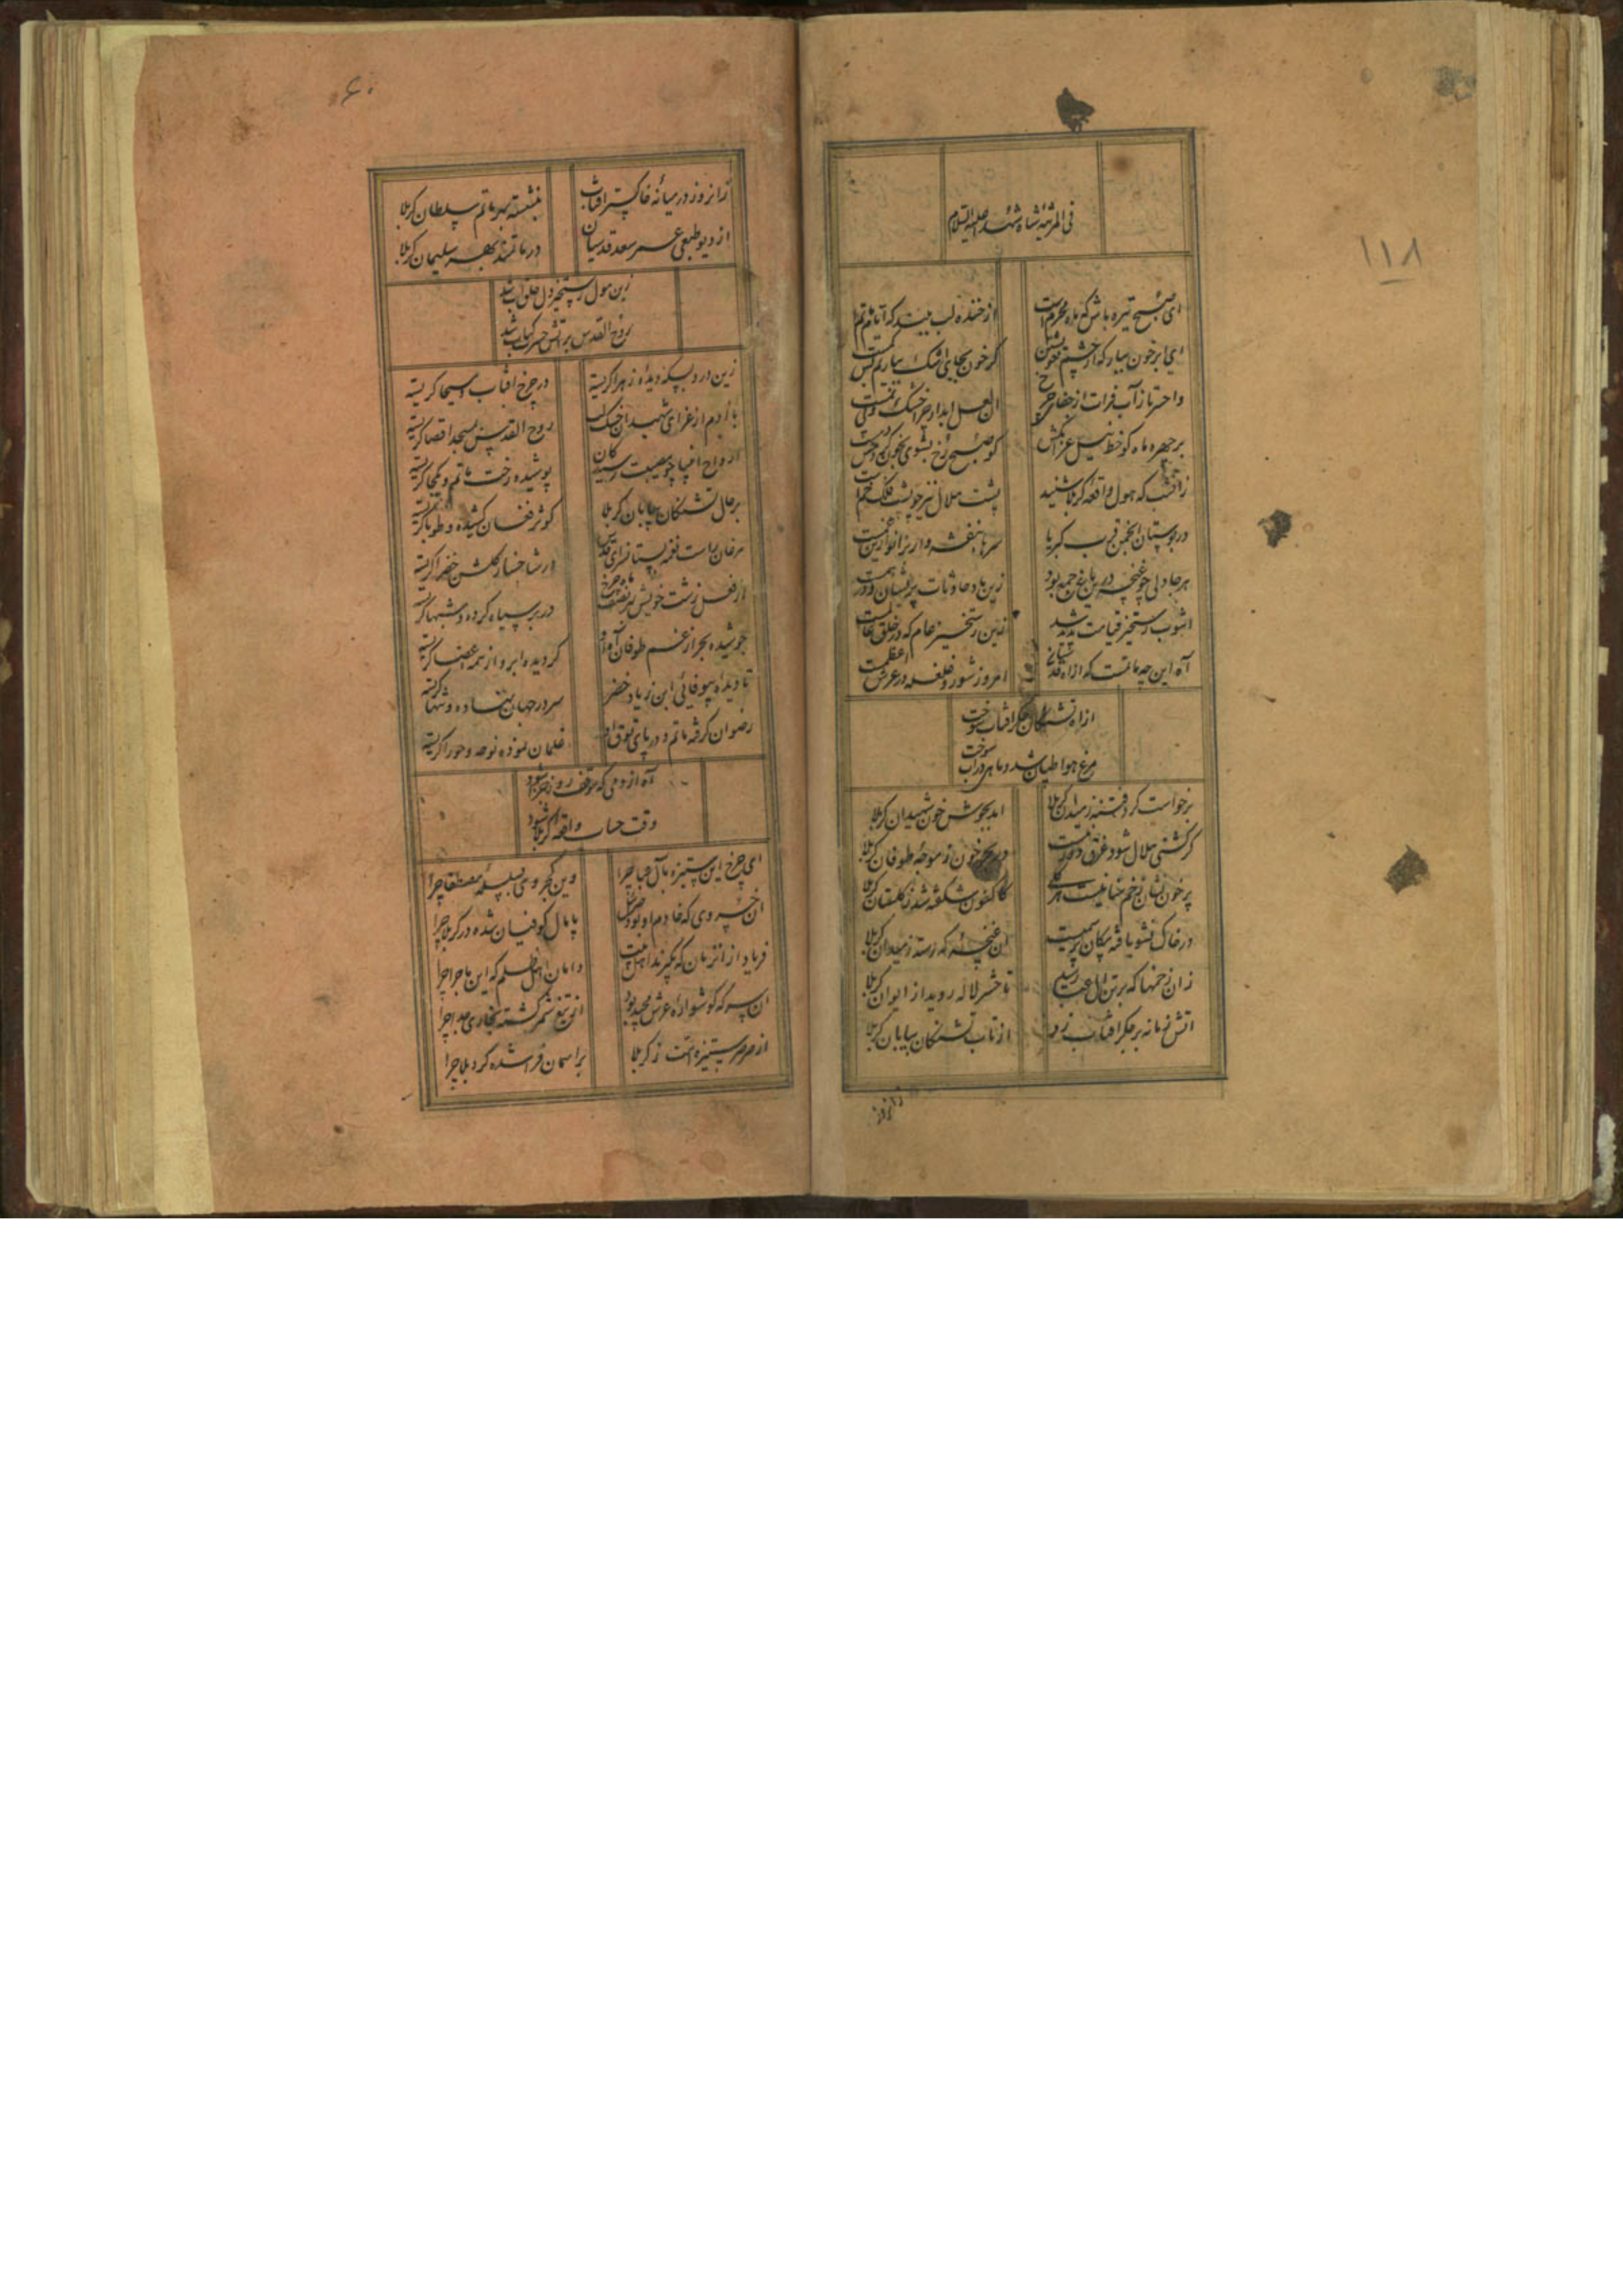 ۱۱۸
فی المرثیه شاه شهدا علیه السلام
ای صبح تیره باش که ماه محرم است
از خنده لب ببند که ایام ماتم است
ای ابر خون ببار که از چشم
کر خون بجای اشک بباریم کم است
واحسرتا ز آب فرات از جفای چرخ
بر چهره ماه کو خط نیل عزا بکش
کو صبح رخ بشوی بخون
زان شب که هول واقعه کربلا شنید
پشت هلال نیز چو پشت فلک خم است
در بوستان انجمن قرب کبریا
سرها بنفشه وار بزانو ازین غم است
هر جا دلی چو غنچه درین باغ جمع بود
زین باد حادثات پریشان و درهم است
آشوب رستخیز قیامت پدید شد
زین رستخیز عام که در خلق عالم است
آه این چه ماتمست که از آه قدسیان
امروز شور و غلغله در عرش اعظم است
از آه تشنگان جکر افتاب سوخت
مرغ هوا طپان شد و ماهی در آب سوخت
برخواست کرد فتنه ز میدان کربلا
امد بجوش خون شهیدان کربلا
کر کشتی هلال شود غرق دور نیست
در بحر خون ز موجه طوفان کربلا
پر خون نشان زخم
کلکون شکفته شد ز کلستان کربلا
در خاک نشو یافته پیکان
ان غنچه که رسته ز میدان کربلا
زان زخمها که بر تن آل عبا رسید
تا حشر لاله روید از ایوان کربلا
اتش زمانه بر جکر افتاب زد
از تاب تشنکان بیابان کربلا
زانروز
۶۰
زانروز در میانه خاکستر افتاب
بنشسته بهر ماتم سلطان کربلا
از دیو طبعی عمر سعد قدسیان
در ماتمند بهر سلیمان کربلا
زین هول رستخیز دل خلق آب شد
روح القدس بر آتش حسرت کباب شد
زین درد بسکه دیده زهرا کریسته
در چرخ افتاب و مسیحا کریسته
با آدم از عزای شهیدان خشک لب
روح القدس بمسجد اقصا کریسته
ارواح انبیا چو مصیبت رسیدکان
پوشیده رخت ماتم و یکجا کریسته
بر حال تشنکان بیابان کربلا
کوثر فغان کشیده و طوبا کریسته
مرغان راست نغمه بستانسرای قدس
از شاخسار کلشن خضرا کریسته
از فعل زشت خویش
در بر سیاه کرده و شبها کریسته
جوشیده بحر از غم طوفان آه او
کردیده ابر و از همه اعضا کریسته
تا دیده بیوفائی ابن زیاد خضر
سر در جهان نهاده و تنها کریسته
رضوان کرفته ماتم و در پای
غلمان نموده نوحه و حورا کریسته
آه از دمی که موقف روز جزا شود
وقت حساب واقعه کربلا شود
ای چرخ این ستیزه بآل عبا چرا
وین کجروی بسلسله مصطفا چرا
ان خسروی که خادم او بود جبرئیل
پامال کوفیان شده در کربلا چرا
فریاد از آنزمان که بکیرند اهل بیت
دامان اهل ظلم که این ماجرا چرا
ان سر که کوشواره عرش مجید بود
از تیغ شمر کشته بخواری جدا چرا
از صرصر ستیزه امت ز کربلا
بر آسمان فراشده کرد بلا چرا